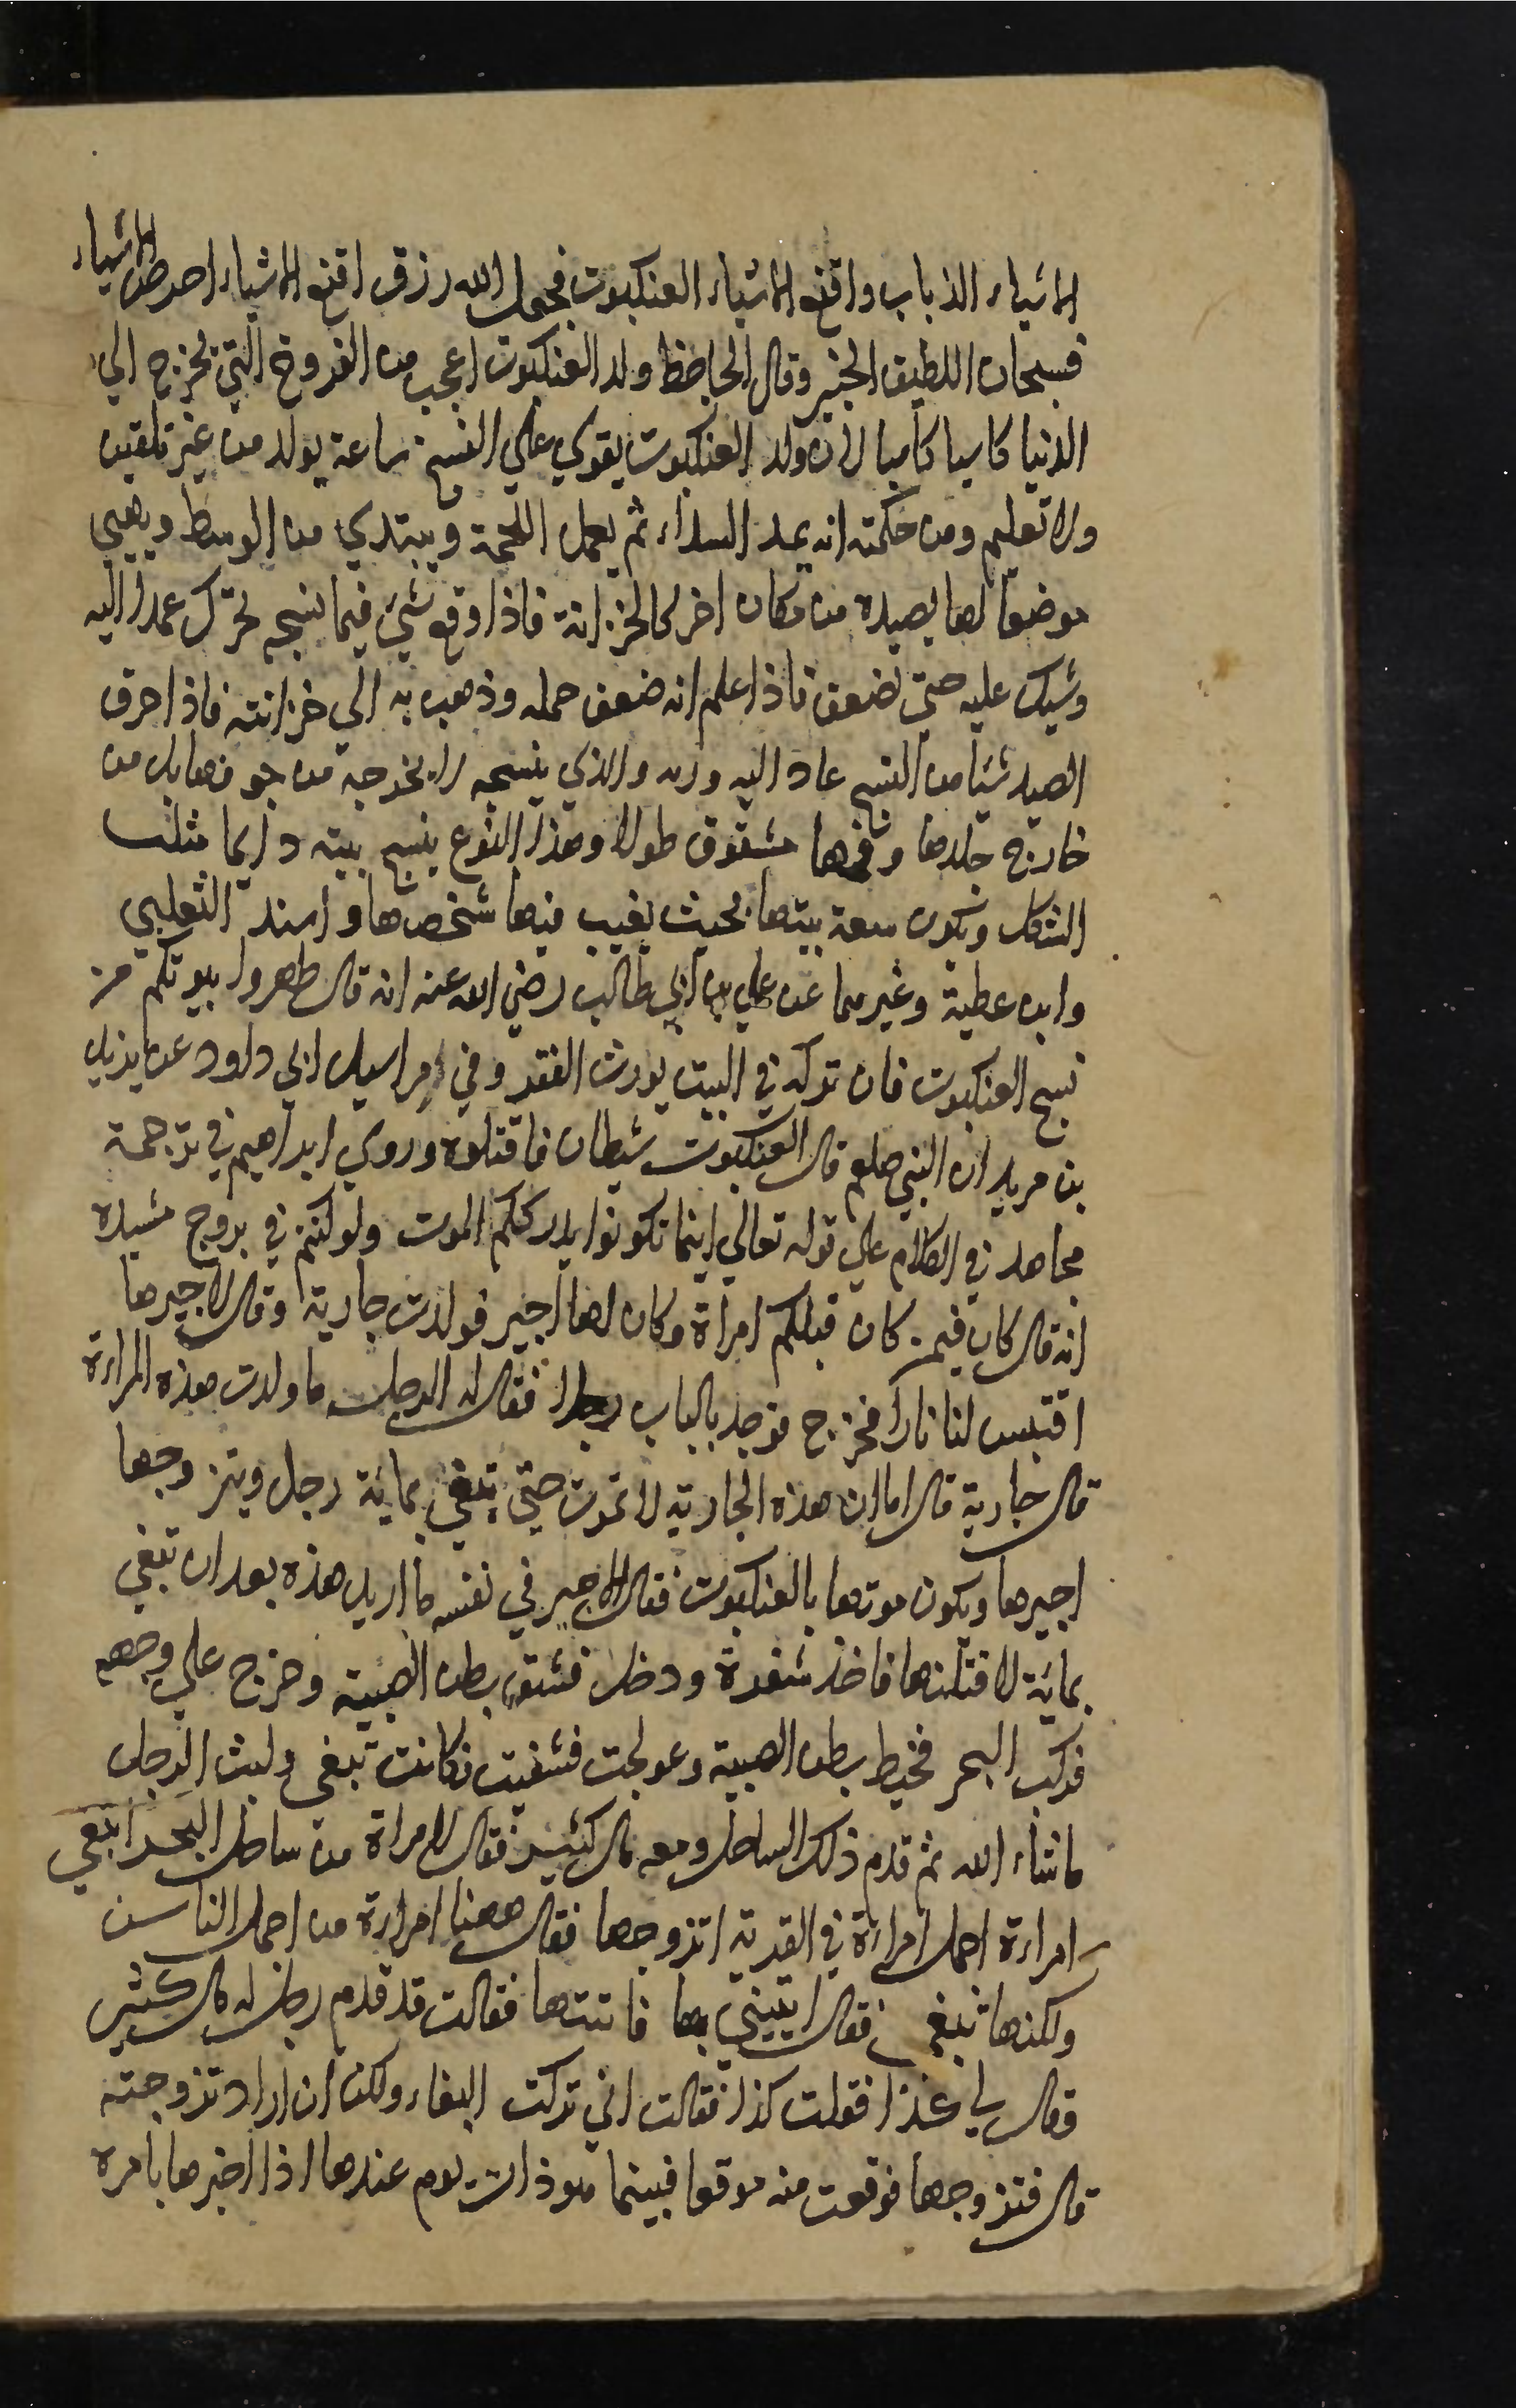 الاشياء الذباب واقنع الاشياء العنكبوت فجعل الله رزق اقنع الاشياء احرص الاشياء
فسبحان اللطيف الخبير وقال الجاحظ ولد العنكبوت اعجب من الفروخ التي تخرج الي
الدنيا كاسيا كاسبا لان ولد العنكبوت يقوي علي النسج ساعة يولد من غير تلقين
ولا تعليم ومن حكمته انه يمد السداء ثم يعمل اللحمة ويبتدي من الوسط ويهيي
موضعا لما يصيده من مكان اخر كالخزانة فاذا وقع شيء فيما نسجه تحرك عمد اليه
وشبك عليه حتي يضعف فاذا علم انه ضعف حمله وذهب به الي خزانته فاذا خرق
الصيد شيا من النسج عاد اليه ورمه والذي ينسجه لا يخرجه من جوفها بل من
خارج جلدها وفمها مشقوق طولا وهذا النوع ينسج بيته دايما مثلث
الشكل وتكون سعة بيتها بحيث يغيب فيها شخصها واسند الثعلبي
وابن عطية وغيرهما عن علي بن ابي طالب رضي الله عنه انه قال طهروا بيوتكم من
نسج العنكبوت فان تركه في البيت يورث الفقر وفي مراسيل ابي داود عن يزيد
بن مريد ان النبي صلعم قال العنكبوت شيطان فاقتلوه وروي ابراهيم في ترجمة
مجاهد في الكلام علي قوله تعالي اينما تكونوا يدرككم الموت ولو كنتم في بروج مشيدة
انه قال كان فيمن كان قبلكم امراة وكان لها اجير فولدت جارية وقالت لاجيرها
اقتبس لنا نارا فخرج فوجد بالباب رجلا فقال له الرجل ما ولدت هذه المراءة
قال جارية قال اما ان هذه الجارية لا تموت حتي تبغي بمائة رجل ويتزوجها
اجيرها ويكون موتها بالعنكبوت فقال الاجير في نفسه ما اريد هذه بعد ان تبغي
بمائة لاقتلنها فاخذ شفرة ودخل فشق بطن الصبية وخرج علي وجهه
فركب البحر فخيط بطن الصبية وعولجت فشفيت فكانت تبغي ولبث الرجل
ماشاء الله ثم قدم ذلك الساحل ومعه مال كثير فقال لامراة من ساحل البحر ابتغي
امراءة اجمل امراءة في القرية اتزوجها فقال ههنا امراءة من اجمل الناس
ولكنها تبغي فقال ايتيني بها فاتتها فقالت قد قدم رجل له مال كثير
وقال لي كذا فقلت كذا فقالت اني تركت البغاء ولكن ان اراد تزوجته
قال فتزوجها فوقعت منه موقعا فبينما هو ذات يوم عندها اذا اخبرها بامره